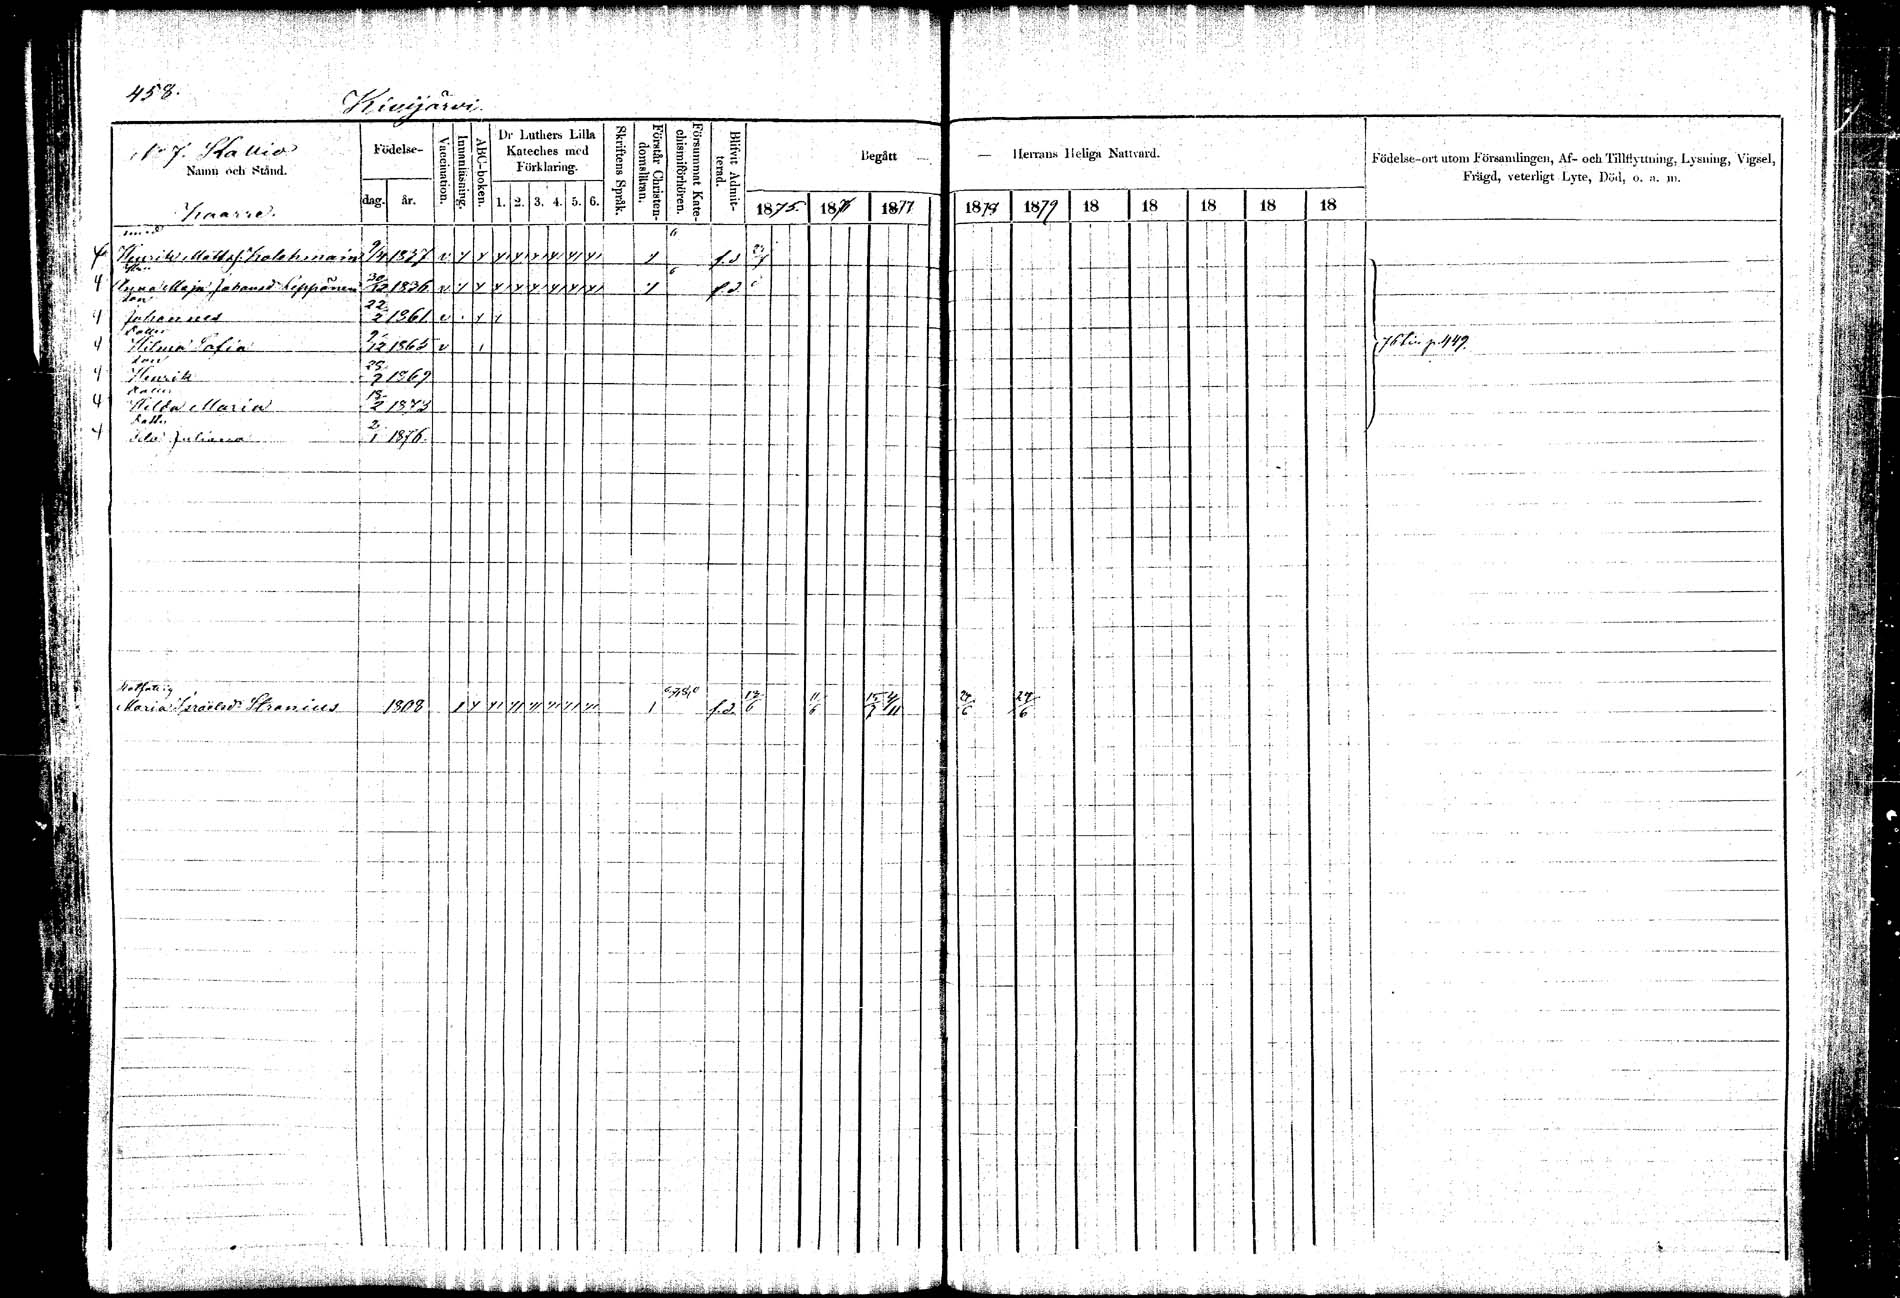 458.
Kivijärvi.
No 7. Kallio
Namn och Stånd.
Födelse-
dag. år.
Vaccination.
Innanläsning.
ABC-boken.
Dr Luthers Lilla
Kateches med
Förklaring.
1. 2. 3. 4. 5. 6.
Skriftens Språk.
Förstår Christen-
domsläran.
Försummat Kate-
chismiförhören.
Blifvit Admit-
terad.
Begått — — Herrans Heliga Nattvard.
1875. 1876 1877 1878 1879 18 18 18 18 18
Födelse-ort utom Församlingen, Af- och Tillflyttning, Lysning, Vigsel,
Frägd, veterligt Lyte, Död, o. a. m.
Henrik Mattss. Kolehmain 9/4 1837 v f.d.
Anna Maja Johansd Leppänen 30/12 1836 v f.d.
son
Johannes 22/2 1861 v
Dotter
Hilma Sofia 9/12 1863 v 76 fin p. 449.
son
Henrik 1869
Dotter
Hilda Maria 18/2 1873
Dotter
Ida Juliana 2/1 1876
Maria Israelsd Stranius 1808 f.d. 13/6 11/6 15/7 4/11 24/6